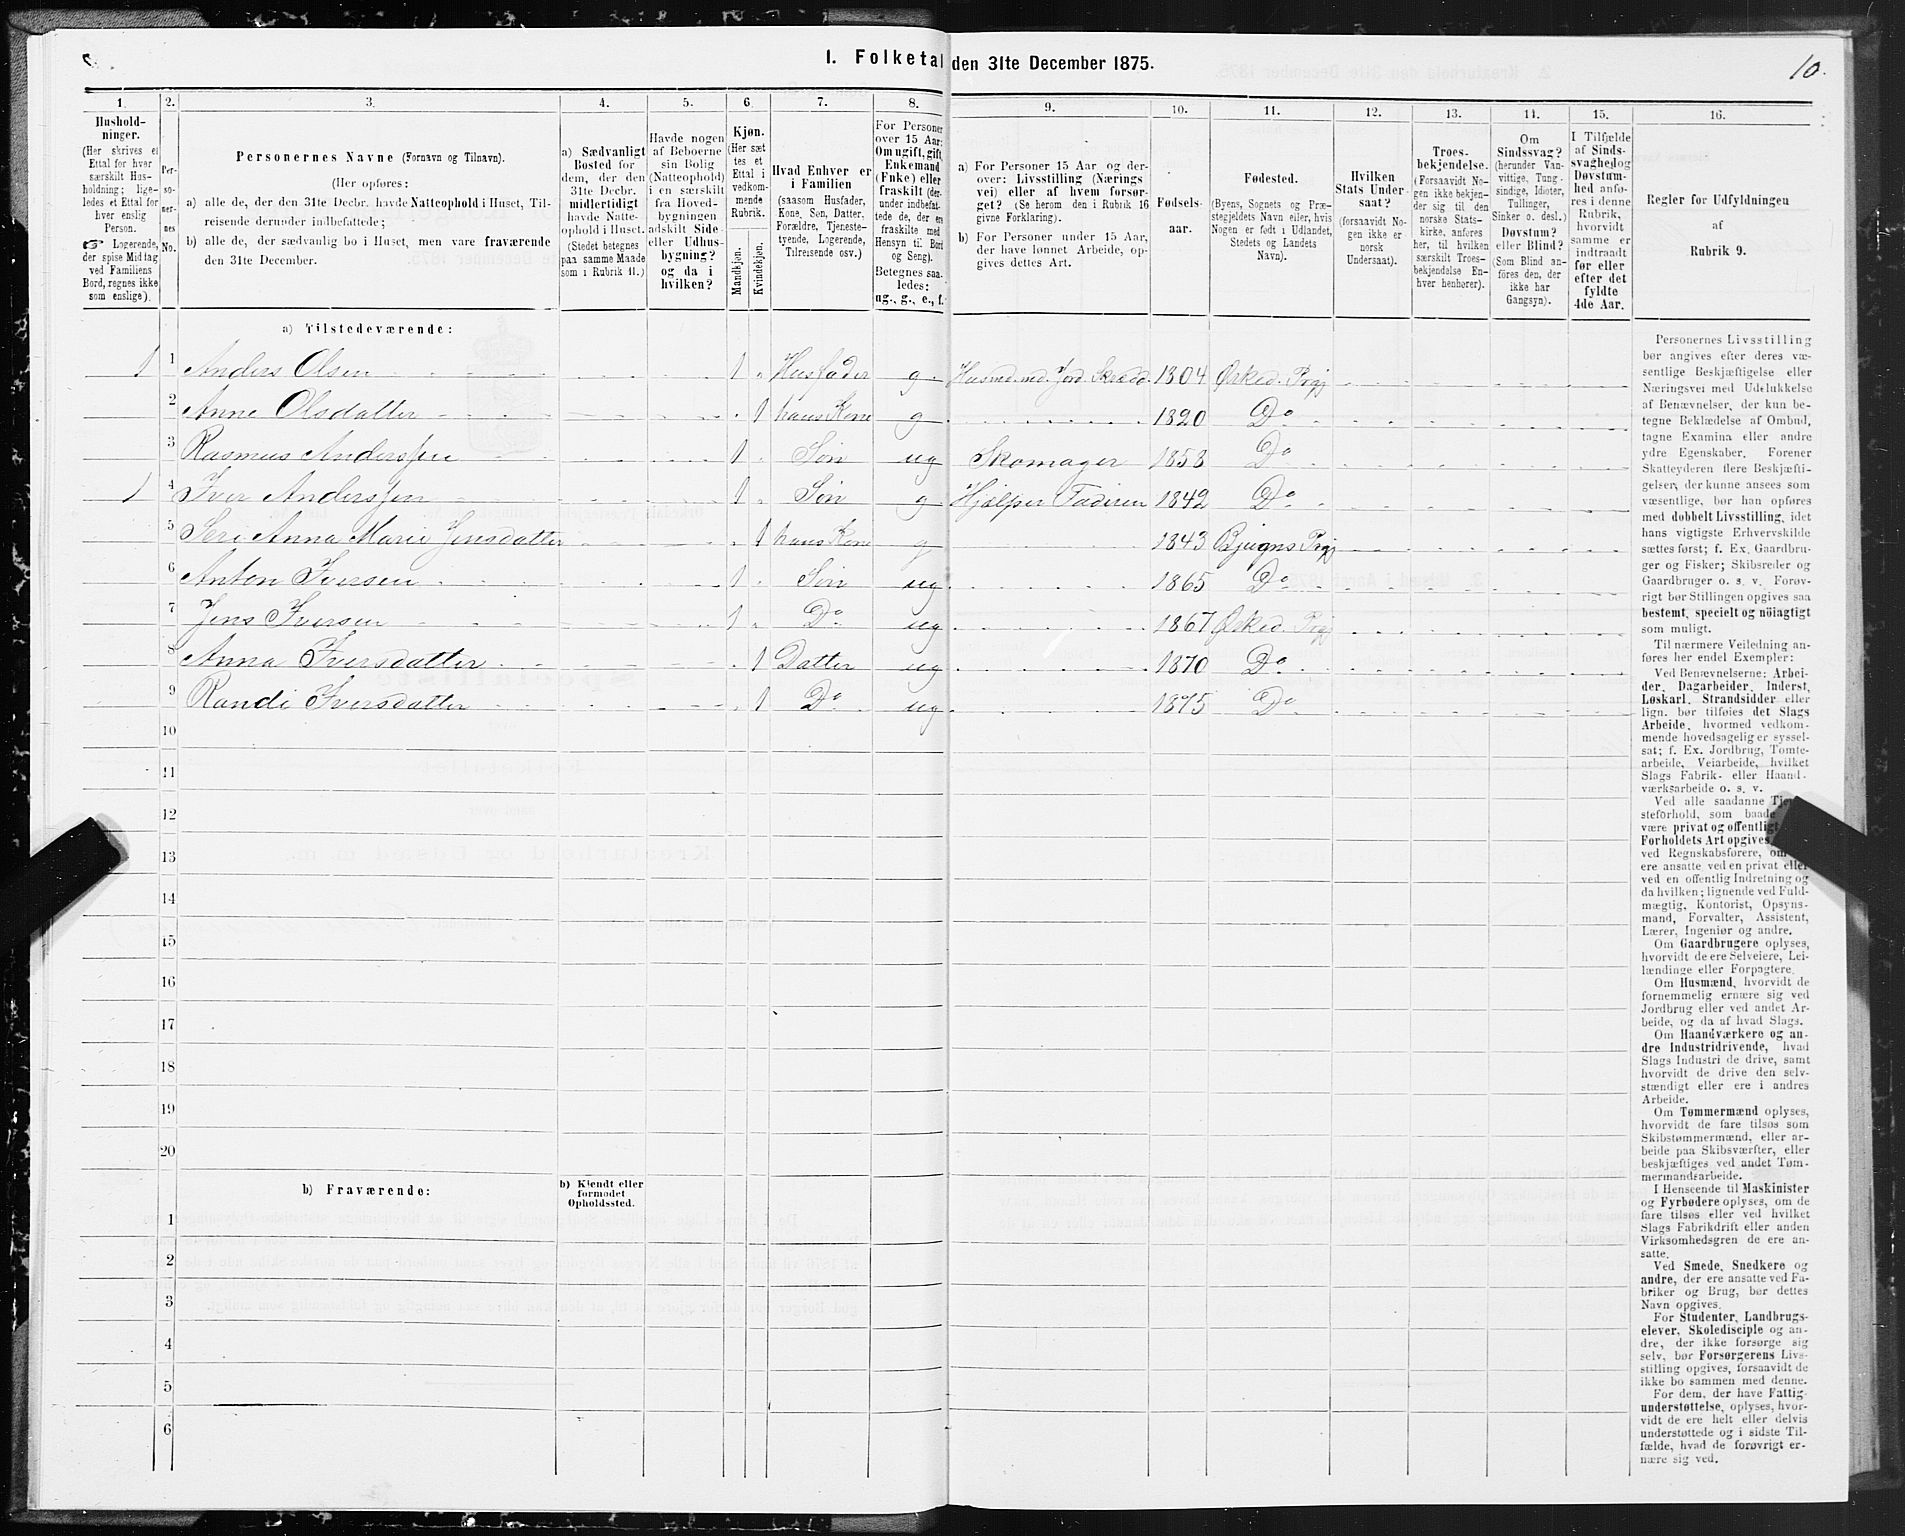 I. Folketal den 31te December 1875.
10.
1. 2. 3. 4. 5. 6. 7. 8. 9. 10. 11. 12. 13. 14. 15. 16.
Hushold-
ninger.
(Her skrives et
Ettal for hver
særskilt Hus-
holdning; lige-
ledes et Ettal for
hver enslig
Person.
☞ Logerende,
der spise Middag
ved Familiens
Bord, regnes ikke
som enslige).
Per-
so-
ner-
nes
No.
Personernes Navne (Fornavn og Tilnavn).
(Her opføres:
a) alle de, der den 31te Decbr. havde Natteophold i Huset, Til-
reisende derunder indbefattede;
b) alle de, der sædvanlig bo i Huset, men vare fraværende
den 31te December.
a) Sædvanligt
Bosted for
dem, der den
31te Decbr.
midlertidigt
havde Natte-
ophold i Huset.
(Stedet betegnes
paa samme Maade
som i Rubrik 11.)
Havde nogen
af Beboerne
sin Bolig
(Natteophold)
i en særskilt
fra Hoved-
bygningen
adskilt Side-
eller Udhus-
bygning?
og da i
hvilken?
Kjøn.
(Her sæt
tes et
Ettal i
vedkom-
mende
Rubrik.
Mandkjøn.
Kvindekjøn.
Hvad Enhver er
i Familien
(saasom Husfader,
Kone, Søn, Datter,
Forældre, Tjeneste-
tyende, Logerende,
Tilreisende osv.)
For Personer
over 15 Aar:
Om ugift, gift,
Enkemand
(Enke) eller
fraskilt (der-
under indbefat-
tede de, der ere
fraskilte med
Hensyn til Bord
og Seng).
Betegnes saa-
ledes:
ug., g., e., f.
a) For Personer 15 Aar og der-
over: Livsstilling (Nærings
vei) eller af hvem forsør-
get? (Se herom den i Rubrik 16
givne Forklaring).
b) For Personer under 15 Aar,
der have lønnet Arbeide, op-
gives dettes Art.
Fødsels-
aar.
Fødested.
(Byens, Sognets og Præ-
stegjeldets Navn eller, hvis
Nogen er født i Udlandet,
Stedets og Landets
Navn).
Hvilken
Stats Under-
saat?
(forsaavidt No-
gen ikke er
norsk
Undersaat).
Troes-
bekjendelse.
(Forsaavidt No-
gen ikke bekjen-
der sig til den
norske Stats-
kirke, anføres
her, til hvilken
særskilt Troes-
bekjendelse En-
hver henhører).
Om
Sindssvag?
(herunder Van-
vittige, Tung-
sindige, Idioter,
Tullinger,
Sinker o. desl.)
Døvstum?
eller Blind?
(Som Blind an-
føres den, der
ikke har
Gangsyn).
I Tilfælde
af Sinds-
svaghed og
Døvstum-
hed anfø-
res i denne
Rubrik,
hvorvidt
samme er
indtraadt
før eller
efter det
fyldte
4de Aar.
Regler før Udfyldningen
af
Rubrik 9.
a) Tilstedeværende:
1 1 Anders Olsen 1 Husfader g Husmd. md. Jord 1804 Ørked. Prgj
2 Anne Olsdatter 1 hans Kone g 1820 Do
3 Rasmus Anderssen 1 Søn ug Skomager 1858 Do
1 4 Iver Anderssen 1 Søn g Hjælper Faderen 1842 Do
5 Seri Anna Marie Jensdatter 1 hans Kone g 1843 Bjugns Prgj
6 Anton Iversen 1 Søn ug 1865 Do
7 Jens Iversen 1 Do ug 1867 Ørked. Prgj
8 Anna Iversdatter 1 Datter ug 1870 Do
9 Randi Iversdatter 1 Do ug 1875 Do
10
11
12
13
14
15
16
17
18
19
20
b) Fraværende:
b) Kjendt eller
formodet
Opholdssted.
1
2
3
4
5
6
Personernes Livsstilling
bør angives efter deres væ-
sentlige Beskjæftigelse eller
Næringsvei med Udelukkelse
af Benævnelser, der kun be-
tegne Beklædelse af Ombud,
tagne Examina eller andre
ydre Egenskaber. Forener
Skatteyderen flere Beskjæfti-
gelser, der kunne ansees som
væsentlige, bør han opføres
med dobbelt Livsstilling, idet
hans vigtigste Erhvervskilde
sættes først; f. Ex. Gaardbru-
ger og Fisker; Skibsreder og
Gaardbruger o. s. v. Forøv-
rigt bør Stillingen opgives saa
bestemt, specielt og nöiagtigt
som muligt.
Til nærmere Veiledning an-
føres her endel Exempler:
Ved Benævnelserne: Arbei-
der, Dagarbeider, Inderst,
Løskarl, Strandsidder eller
lign. bør tilføies det Slags
Arbeide, hvormed vedkom-
mende hovedsagelig er syssel-
sat; f. Ex. Jordbrug, Tomte-
arbeide, Veiarbeide, hvilket
Slags Fabrik- eller Haand-
værksarbeide o. s. v.
Ved alle saadanne
steforhold, som baade
være privat og offentligt
Forholdets Art opgives
ved Regnskabsførere,
ere ansatte ved en privat eller
ved en offentlig Indretning og
da hvilken; lignende ved Fuld-
mægtig, Kontorist, Opsyns-
mand, Forvalter, Assistent,
Lærer, Ingeniør og andre.
Om Gaardbrugere oplyses,
hvorvidt de ere Selveiere, Lei-
lændinge eller Forpagtere.
Om Husmænd, hvorvidt de
fornemmelig ernære sig ved
Jordbrug eller ved andet Ar-
beide, og da af hvad Slags.
Om Haandværkere og an-
dre Industridrivende, hvad
Slags Industri de drive, samt
hvorvidt de drive den selv-
stændigt eller ere i andres
Arbeide.
Om Tømmermænd oplyses,
hvorvidt de fare tilsøs som
Skibstømmermænd, eller ar-
beide paa Skibsværfter, eller
beskjæftiges ved andet Tøm-
mermandsarbeide.
I Henseende til Maskinister
og Fyrbødere oplyses, om de
fare tilsøs eller ved hvilket
Slags Fabrikdrift eller anden
Virksomhedsgren de ere an-
satte.
Ved Smede, Snedkere og
andre, der ere ansatte ved Fa-
briker og Brug, bør dettes
Navn opgives.
For Studenter, Landbrugs-
elever, Skoledisciple og an-
dre, der ikke forsørge sig
selv, bør Forsørgerens Livs-
stilling opgives, forsaavidt de
ikke bo sammen med denne.
For dem, der have Fattig-
understøttelse, oplyses, hvor-
vidt de ere helt eller delvis
understøttede og i sidste Til-
fælde, hvad de forøvrigt er-
nære sig ved.